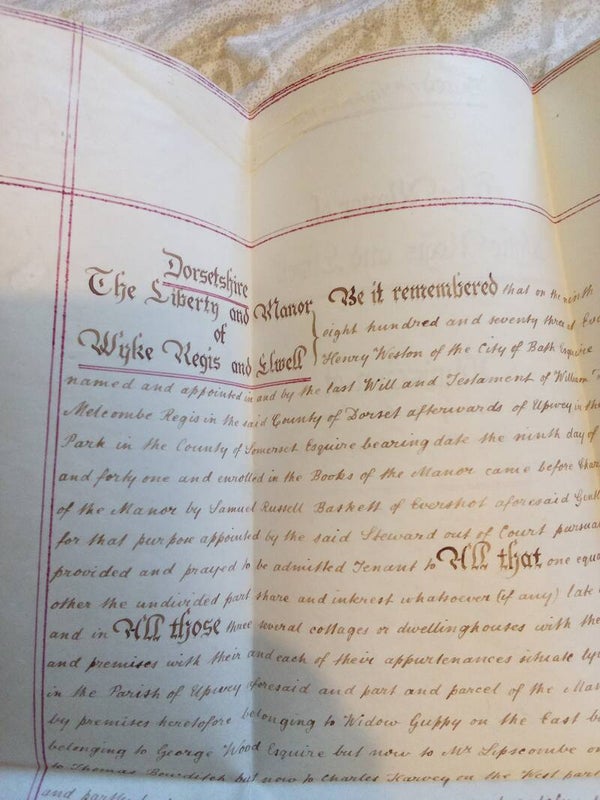 Dorsetshire
The Liberty and Manor
of
Wyke Regis and Elwell
Be it remembered that on the ninth
eight hundred and seventy three
Henry Weston of the City of Bath Esquire
named and appointed in and by the last Will and Testament of William
Melcombe Regis in the said County of Dorset afterwards of Upwey in the
Park in the County of Somerset Esquire bearing date the ninth day of
and forty one and enrolled in the Books of the Manor came before
of the Manor by Samuel Russell Baskett of Evershot aforesaid
for that purpose appointed by the said Steward out of Court
provided and prayed to be admitted Tenant to All that one
other the undivided part share and interest whatsoever (if any) late
and in All those three several cottages or dwellinghouses with the
and premises with their and each of their appurtenances situate
in the Parish of Upwey aforesaid and part and parcel of the
by premises heretofore belonging to Widow Guppy on the East
belonging to George Wood Esquire but now to Mr Lipscombe
to Thomas Bowditch but now to Charles Harvey on the West part
and partly